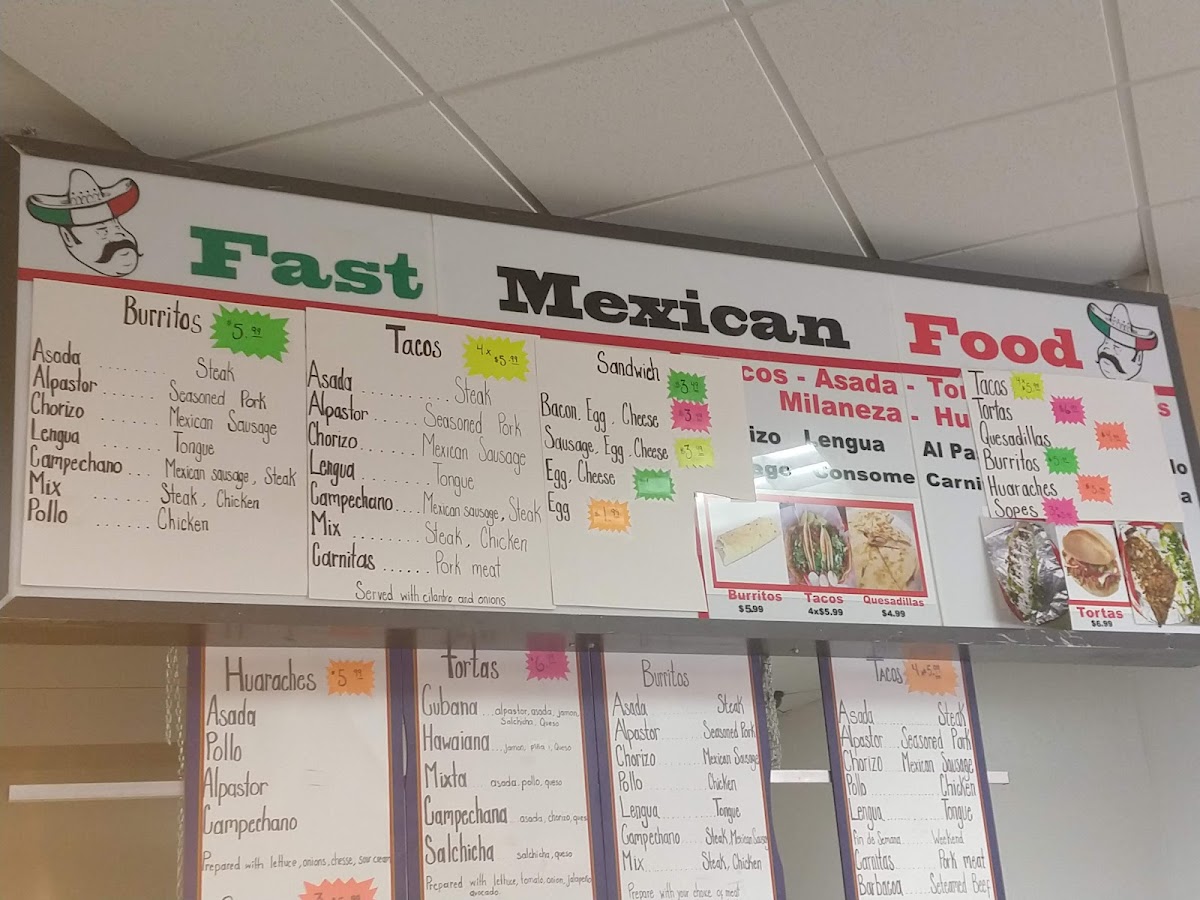 Fast Mexican Food
Burritos $5.99
Asada ........ Steak
Alpastor ....... Seasoned Pork
Chorizo ...... Mexican Sausage
Lengua ....... Tongue
Campechano ... Mexican sausage, Steak
Mix ....... Steak, Chicken
Pollo ....... Chicken
Tacos 4x $5.99
Asada ......... Steak
Alpastor ...... Seasoned Pork
Chorizo ...... Mexican Sausage
Lengua ....... Tongue
Campechano .... Mexican sausage, Steak
Mix ......... Steak, Chicken
Carnitas ...... Pork meat
Served with cilantro and onions
Sandwich $3.49
Bacon. Egg. Cheese
Sausage, Egg. Cheese
Egg, Cheese
Egg $1.99
cos - Asada - Tor
Milaneza - Hu
izo Lengua Al Pa
Consome Carni
Burritos
$5.99
Tacos
4x$5.99
Quesadillas
$4.99
Tacos
Tortas
Quesadillas
Burritos
Huaraches
Sopes
Tortas
$6.99
Huaraches $5.99
Asada
Pollo
Alpastor
Campechano
Prepared with lettuce, onions, chesse, sour cream
Tortas
Cubana ... alpastor, asada, jamon,
Salchicha, Queso
Hawaiana ... jamon, piña, Queso
Mixta asada, pollo, queso
Campechana asada, chorizo, ques
Salchicha salchicha, queso
Prepared with lettuce, tomato, onion, jalapeño
avocado.
Burritos
Asada ........ Steak
Alpastor ....... Seasoned Pork
Chorizo ...... Mexican Sausage
Pollo Chicken
Lengua ....... Tongue
Campechano ..... Steak, Mexican Sausag
Mix ....... Steak, Chicken
Prepare with your choice of meat
Tacos 4x$5.99
Asada ........ Steak
Alpastor ... Seasoned Pork
Chorizo Mexican Sausage
Pollo Chicken
Lengua Tongue
Fin de Semana Weekend
Carnitas Pork meat
Barbacoa ..... Seteamed Beef